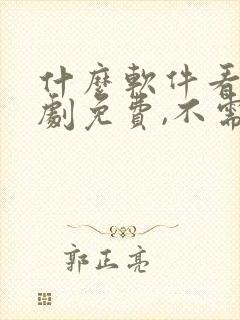 什麼軟件看
劇免費,不需
郭正亮